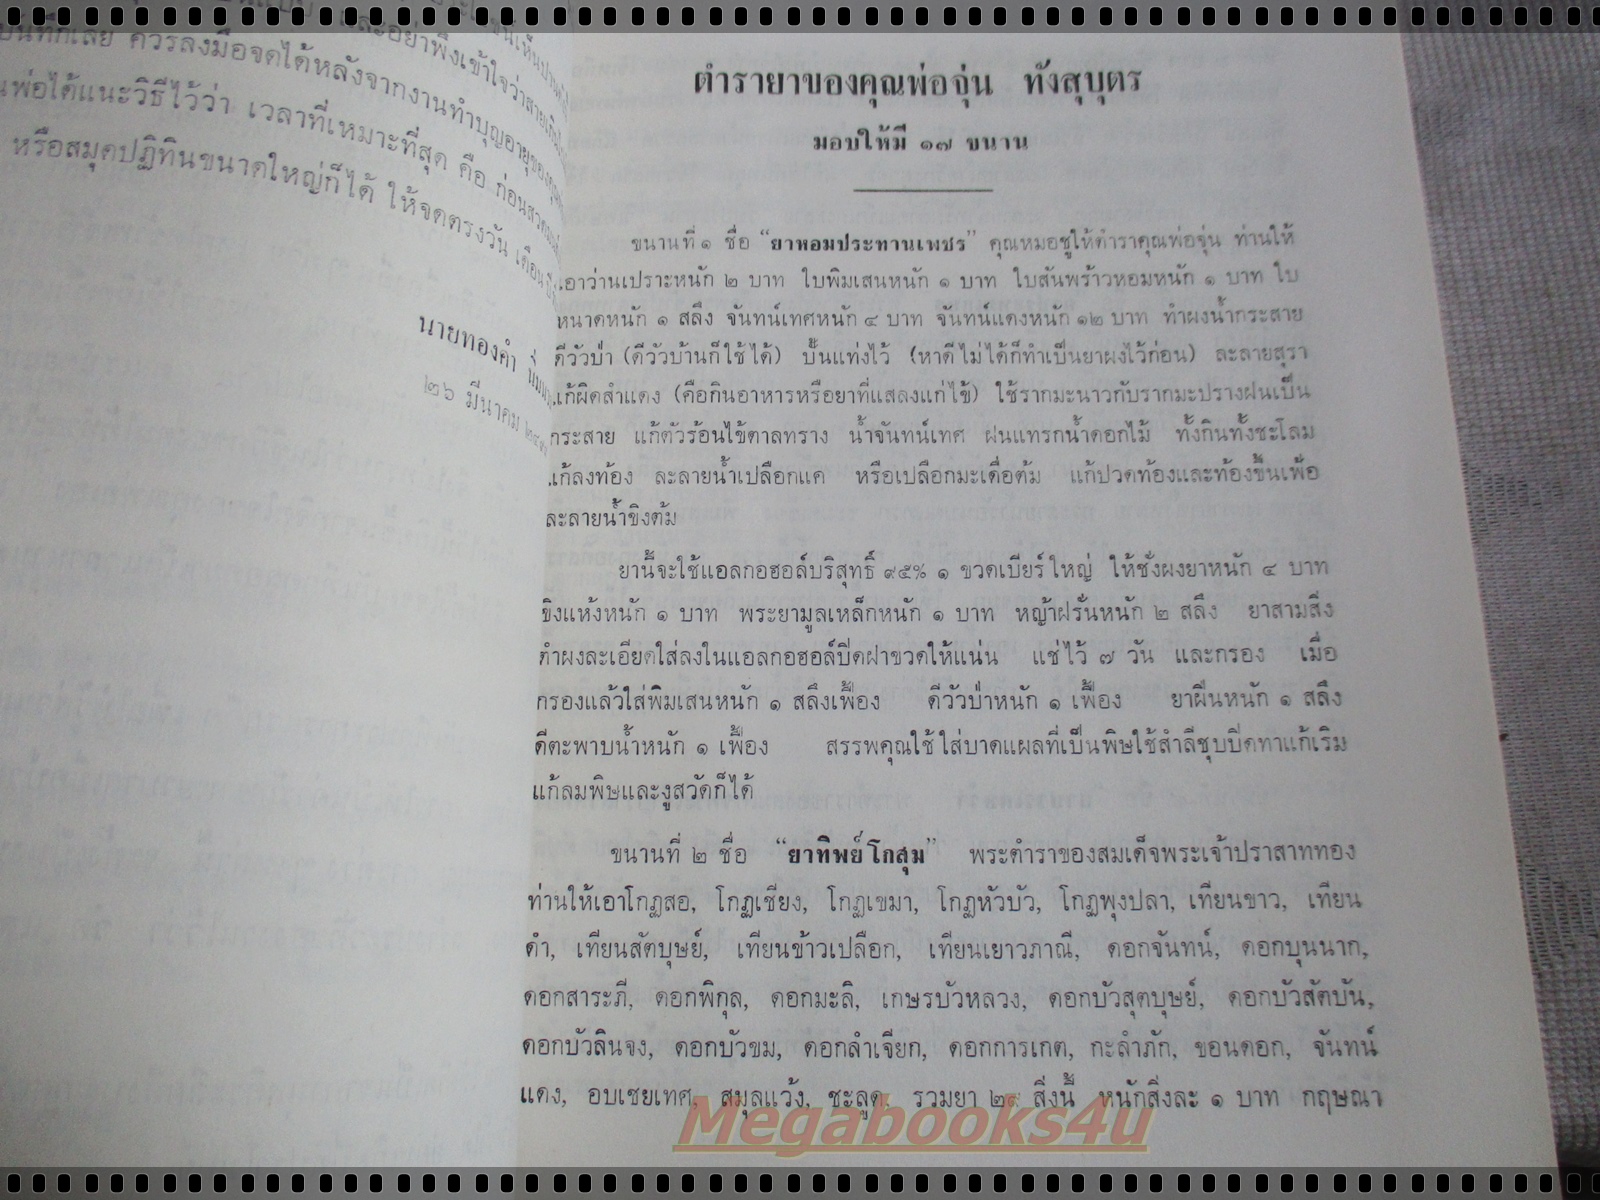 บันทึกเลย ควรลงมือจดได้หลังจากงานทำบุญอายุของคุณ
พ่อได้แนะวิธีไว้ว่า เวลาที่เหมาะที่สุด คือ ก่อนสวด
หรือสมุดปฏิทินขนาดใหญ่ก็ได้ ให้จดตรงวัน เดือน ปี
นายทองคำ
๒๖ มีนาคม
ตำรายาของคุณพ่อจุ่น ทังสุบุตร
มอบให้มี ๑๗ ขนาน
ขนานที่ ๑ ชื่อ “ยาหอมประทานเพชร” คุณหมอชูให้ตำราคุณพ่อจุ่น ท่านให้
เอาว่านเปราะหนัก ๒ บาท ใบพิมเสนหนัก ๑ บาท ใบสันพร้าวหอมหนัก ๑ บาท ใบ
หนาดหนัก ๑ สลึง จันทน์เทศหนัก ๔ บาท จันทน์แดงหนัก ๑๒ บาท ทำผงน้ำกระสาย
ดีวัวป่า (ดีวัวบ้านก็ใช้ได้) ปั้นแท่งไว้ (หาดีไม่ได้ก็ทำเป็นยาผงไว้ก่อน) ละลายสุรา
แก้ผิดสำแดง (คือกินอาหารหรือยาที่แสลงแก่ไข้) ใช้รากมะนาวกับรากมะปรางฝนเป็น
กระสาย แก้ตัวร้อนไข้ตาลทราง น้ำจันทน์เทศ ฝนแทรกน้ำดอกไม้ ทั้งกินทั้งชะโลม
แก้ลงท้อง ละลายน้ำเปลือกแค หรือเปลือกมะเดื่อต้ม แก้ปวดท้องและท้องขึ้นเฟ้อ
ละลายน้ำขิงต้ม
ยานี้จะใช้แอลกอฮอล์บริสุทธิ์ ๙๕% ๑ ขวดเบียร์ใหญ่ ให้ชั่งผงยาหนัก ๔ บาท
ขิงแห้งหนัก ๑ บาท พระยามูลเหล็กหนัก ๑ บาท หญ้าฝรั่นหนัก ๒ สลึง ยาสามสิ่ง
ตำผงละเอียดใส่ลงในแอลกอฮอล์ปิดฝาขวดให้แน่น แช่ไว้ ๗ วัน และกรอง เมื่อ
กรองแล้วใส่พิมเสนหนัก ๑ สลึงเฟื้อง ดีวัวป่าหนัก ๑ เฟื้อง ยาฝิ่นหนัก ๑ สลึง
ดีตะพาบน้ำหนัก ๑ เฟื้อง สรรพคุณใช้ใส่บาดแผลที่เป็นพิษใช้สำลีชุบปิดทาแก้เริม
แก้ลมพิษและงูสวัดก็ได้
ขนานที่ ๒ ชื่อ “ยาทิพย์โกสุม” พระตำราของสมเด็จพระเจ้าปราสาททอง
ท่านให้เอาโกฏสอ, โกฏเชียง, โกฏเขมา, โกฏหัวบัว, โกฏพุงปลา, เทียนขาว, เทียน
ดำ, เทียนสัตบุษย์, เทียนข้าวเปลือก, เทียนเยาวภาณี, ดอกจันทน์, ดอกบุนนาก,
ดอกสาระภี, ดอกพิกุล, ดอกมะลิ, เกษรบัวหลวง, ดอกบัวสุตบุษย์, ดอกบัวสัตบัน,
ดอกบัวลินจง, ดอกบัวขม, ดอกลำเจียก, ดอกการเกต, กะลำภัก, ขอนดอก, จันทน์
แดง, อบเชยเทศ, สมุลแว้ง, ชะลูด, รวมยา ๒๙ สิ่งนี้ หนักสิ่งละ ๑ บาท กฤษณา
Megabooks4u